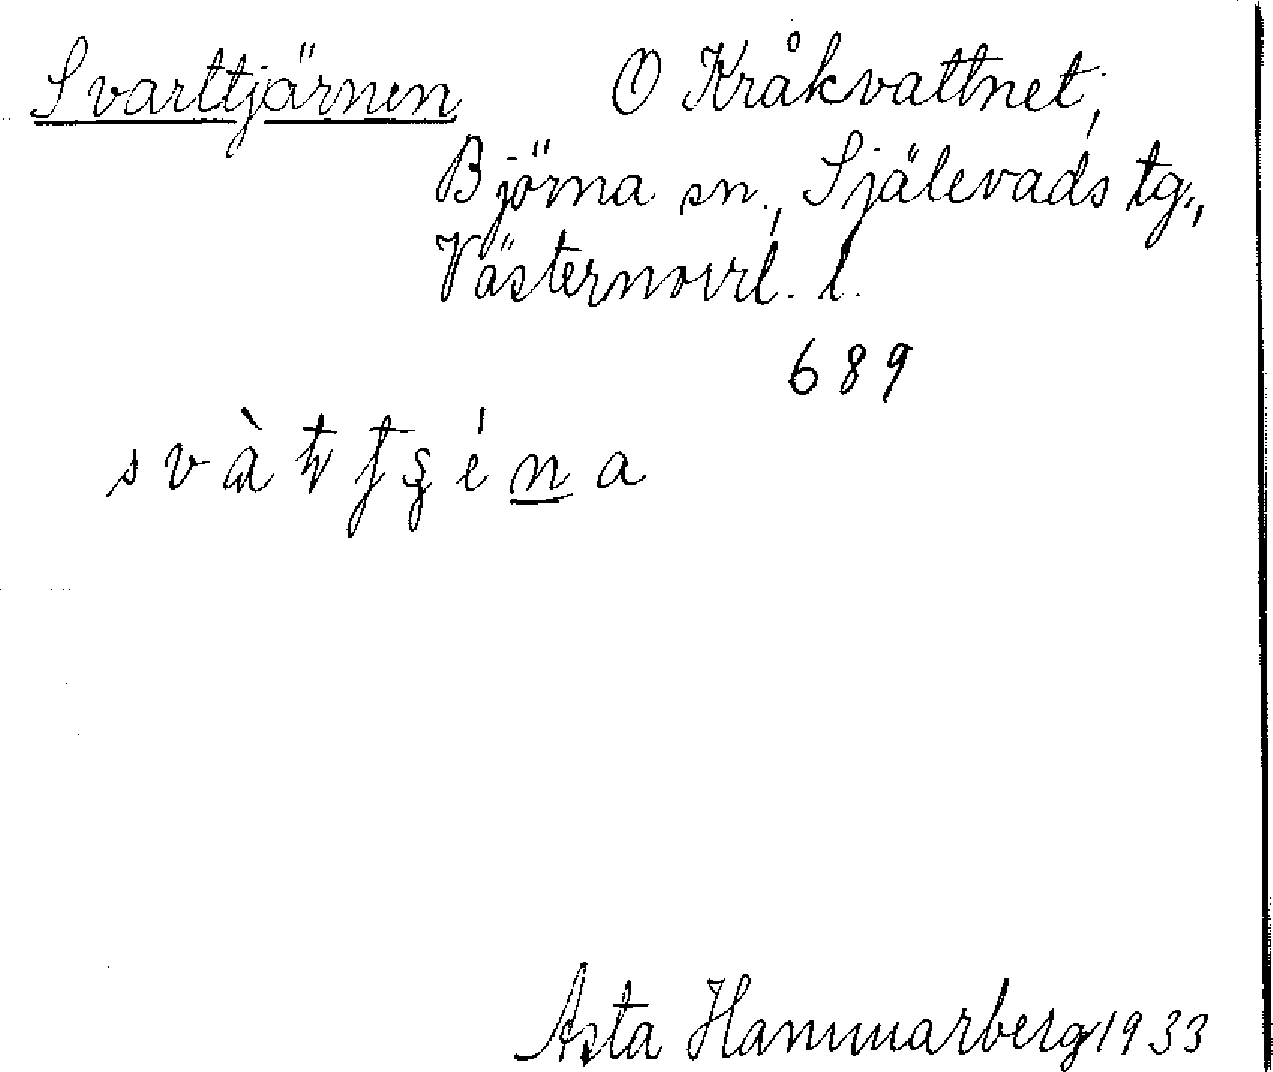 Svarttjärnen O Kråkvattnet,
Björna sn., Själevads tg.,
Västernorrl. l.
689
Asta Hammarberg 1933